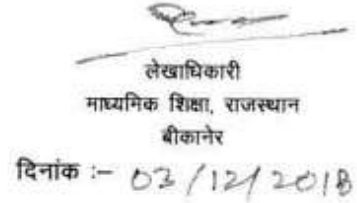 लेखाधिकारी
माध्यमिक शिक्षा, राजस्थान
बीकानेर
दिनांक :- 03/12/2018